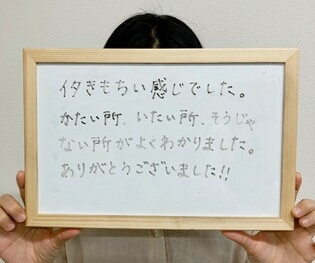 イタきもちい感じでした。
かたい所、いたい所、そうじゃ
ない所がよくわかりました。
ありがとうございました!!